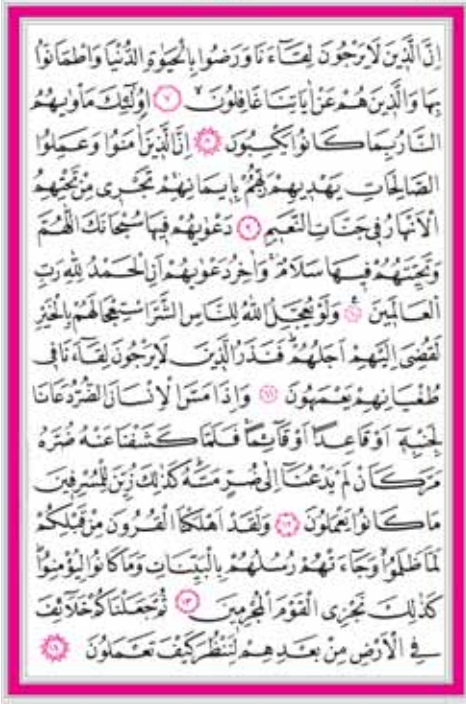 اِنَّ الَّذ۪ينَ لَا يَرْجُونَ لِقَٓاءَنَا وَرَضُوا بِالْحَيٰوةِ الدُّنْيَا وَاطْمَاَنُّوا
بِهَا وَالَّذ۪ينَ هُمْ عَنْ اٰيَاتِنَا غَافِلُونَۙ ﴿٧﴾ اُو۬لٰٓئِكَ مَأْوٰيهُمُ
النَّارُ بِمَا كَانُوا يَكْسِبُونَ ﴿٨﴾ اِنَّ الَّذ۪ينَ اٰمَنُوا وَعَمِلُوا
الصَّالِحَاتِ يَهْد۪يهِمْ رَبُّهُمْ بِا۪يمَانِهِمْۚ تَجْر۪ي مِنْ تَحْتِهِمُ
الْاَنْهَارُ ف۪ي جَنَّاتِ النَّع۪يمِ ﴿٩﴾ دَعْوٰيهُمْ ف۪يهَا سُبْحَانَكَ اللّٰهُمَّ
وَتَحِيَّتُهُمْ ف۪يهَا سَلَامٌۚ وَاٰخِرُ دَعْوٰيهُمْ اَنِ الْحَمْدُ لِلّٰهِ رَبِّ
الْعَالَم۪ينَ ﴿١٠﴾ وَلَوْ يُعَجِّلُ اللّٰهُ لِلنَّاسِ الشَّرَّ اسْتِعْجَالَهُمْ بِالْخَيْرِ
لَقُضِيَ اِلَيْهِمْ اَجَلُهُمْۜ فَنَذَرُ الَّذ۪ينَ لَا يَرْجُونَ لِقَٓاءَنَا ف۪ي
طُغْيَانِهِمْ يَعْمَهُونَ ﴿١١﴾ وَاِذَا مَسَّ الْاِنْسَانَ الضُّرُّ دَعَانَا
لِجَنْبِه۪ٓ اَوْ قَاعِدًا اَوْ قَٓائِمًاۚ فَلَمَّا كَشَفْنَا عَنْهُ ضُرَّهُ
مَرَّ كَاَنْ لَمْ يَدْعُنَٓا اِلٰى ضُرٍّ مَسَّهُۜ كَذٰلِكَ زُيِّنَ لِلْمُسْرِف۪ينَ
مَا كَانُوا يَعْمَلُونَ ﴿١٢﴾ وَلَقَدْ اَهْلَكْنَا الْقُرُونَ مِنْ قَبْلِكُمْ
لَمَّا ظَلَمُواۙ وَجَٓاءَتْهُمْ رُسُلُهُمْ بِالْبَيِّنَاتِ وَمَا كَانُوا لِيُؤْمِنُواۜ
كَذٰلِكَ نَجْزِي الْقَوْمَ الْمُجْرِم۪ينَ ﴿١٣﴾ ثُمَّ جَعَلْنَاكُمْ خَلَٓائِفَ
فِي الْاَرْضِ مِنْ بَعْدِهِمْ لِنَنْظُرَ كَيْفَ تَعْمَلُونَ ﴿١٤﴾